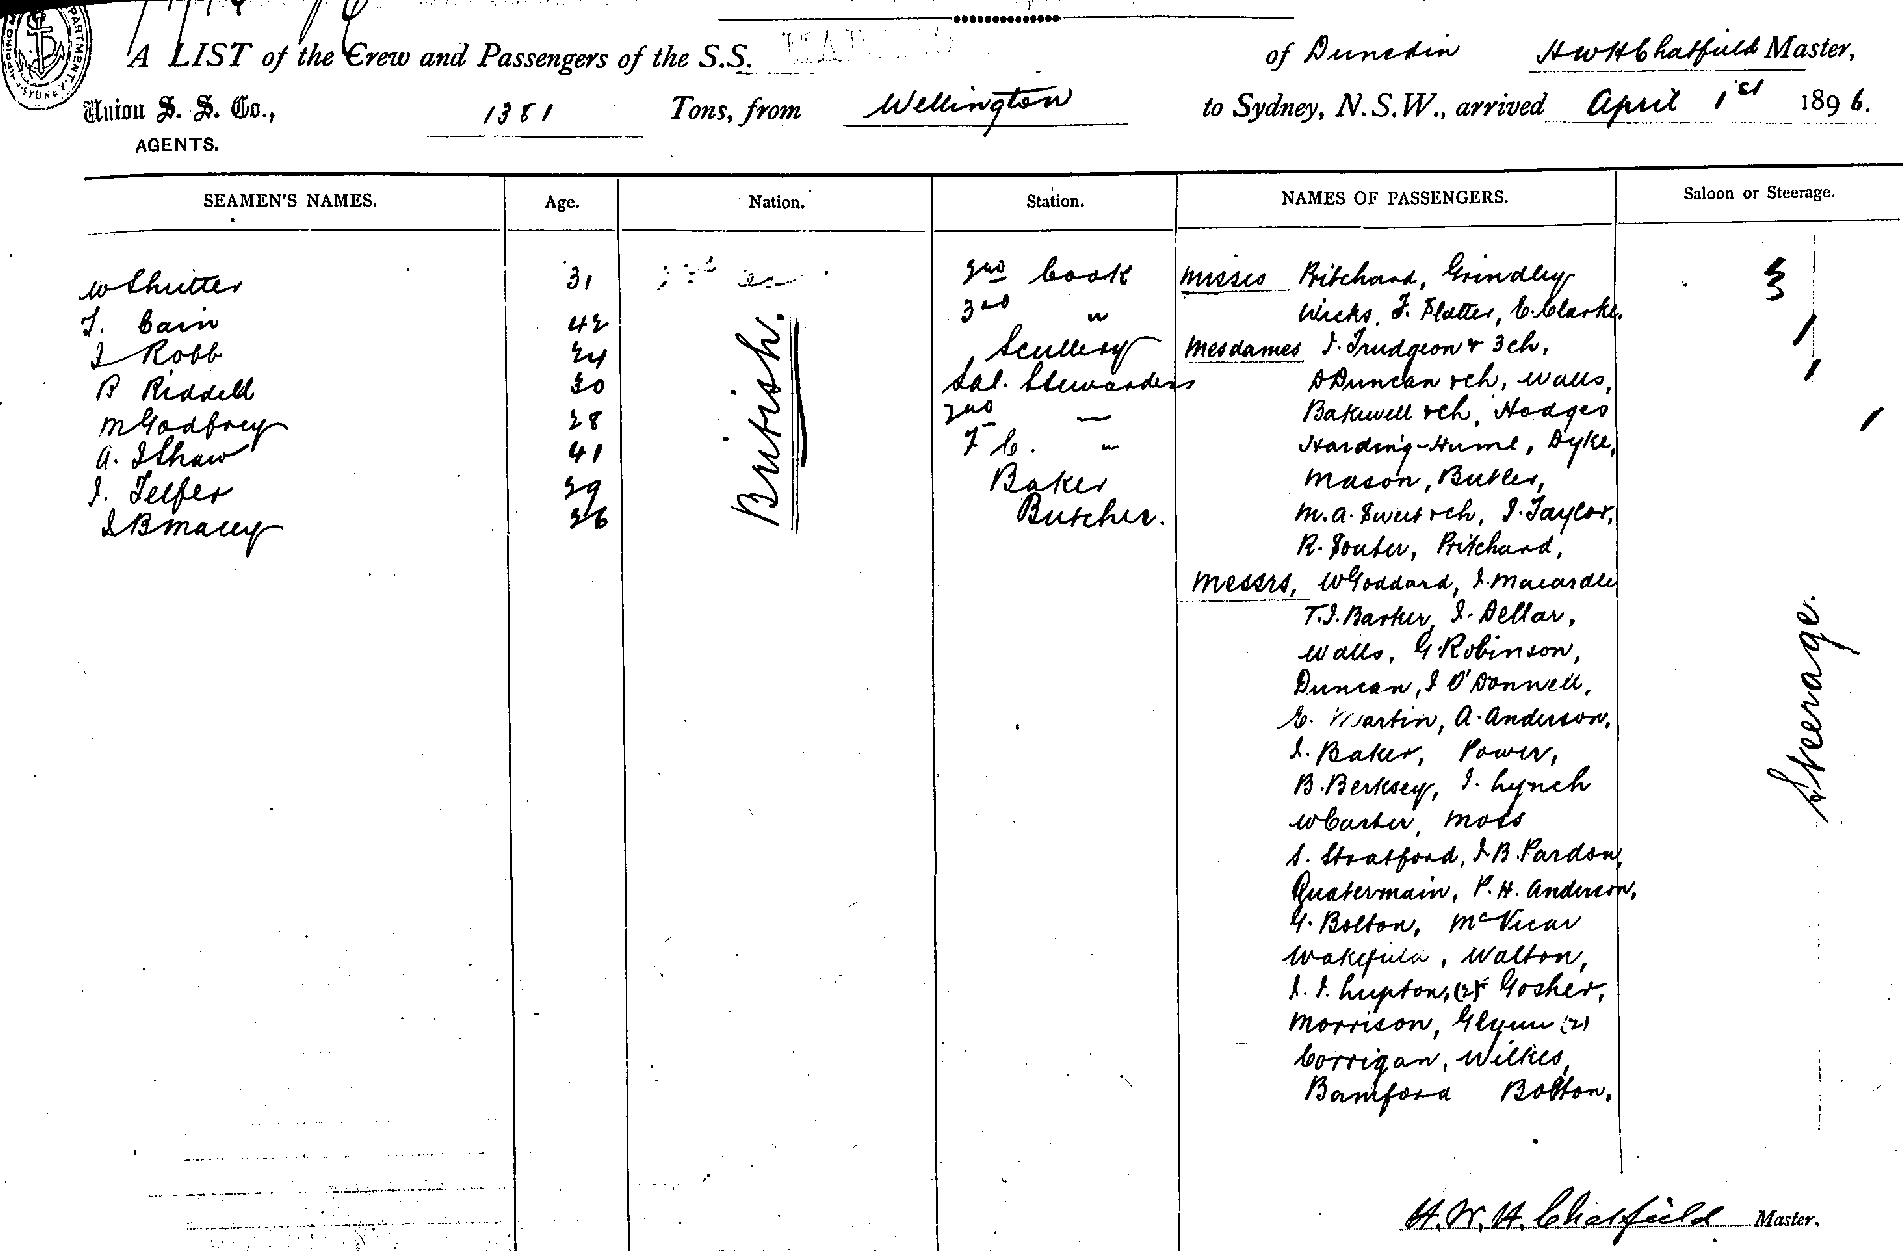 A LIST of the Crew and Passengers of the S.S. of Dunedin H W H Chatfield Master,
Union S. S. Co., 1381 Tons, from Wellington to Sydney, N.S.W., arrived April 1st 1896.
AGENTS.
SEAMEN'S NAMES. Age. Nation. Station. NAMES OF PASSENGERS. Saloon or Steerage.
W Shutter 31 2nd Cook Misses Pritchard, Grindley 3
T. Cain 42 3rd " Wicks, F. Platter, C. Clarke,
J Robb 24 Scullery Mesdames J. Trudgeon & 3 ch,
R Riddell 30 Sal. Stewardess D Duncan & ch, Walls,
M Godfrey 28 2nd — Bakewell & ch, Hodges
A. J Shaw 41 F C. " Harding-Hume, Dyke,
J. Telfer 29 Baker Mason, Butler,
J B Macey 36 Butcher. M. A. Sweet & ch, J. Taylor,
British.
R. Souter, Pritchard,
Messrs, W Goddard, J. Macardle
T. J. Barker, J. Dellar,
Walls, G Robinson,
Duncan, J O'Donnell,
E. Martin, A. Anderson,
J. Baker, Power,
B. Berksey, J. Lynch
W Carter, Moss
S. Stratford, J. B. Pardon,
Quatermain, P. H. Anderson,
G. Bolton, McVicar
Wakefield, Walton,
J. J. Lupton, (2) Gosher,
Morrison, Glynn (2)
Corrigan, Wilkes,
Bamford Bolton.
Steerage.
H. W. H. Chatfield Master.